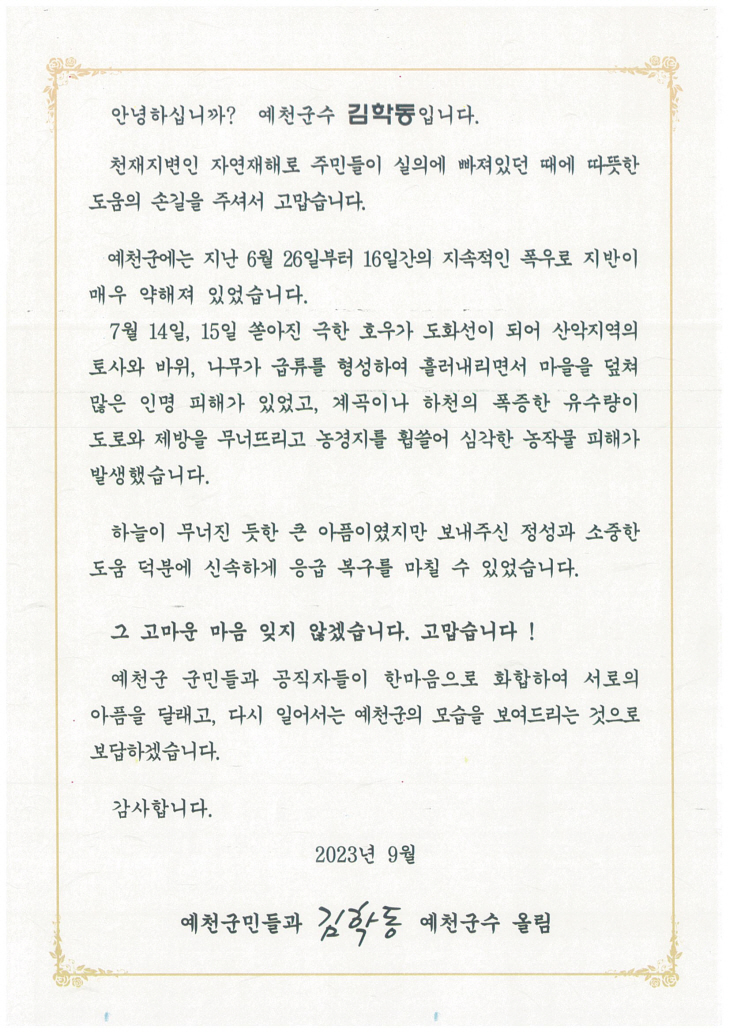 안녕하십니까? 예천군수 김학동입니다.
천재지변인 자연재해로 주민들이 실의에 빠져있던 때에 따뜻한
도움의 손길을 주셔서 고맙습니다.
예천군에는 지난 6월 26일부터 16일간의 지속적인 폭우로 지반이
매우 약해져 있었습니다.
7월 14일, 15일 쏟아진 극한 호우가 도화선이 되어 산악지역의
토사와 바위, 나무가 급류를 형성하여 흘러내리면서 마을을 덮쳐
많은 인명 피해가 있었고, 계곡이나 하천의 폭증한 유수량이
도로와 제방을 무너뜨리고 농경지를 휩쓸어 심각한 농작물 피해가
발생했습니다.
하늘이 무너진 듯한 큰 아픔이였지만 보내주신 정성과 소중한
도움 덕분에 신속하게 응급 복구를 마칠 수 있었습니다.
그 고마운 마음 잊지 않겠습니다. 고맙습니다 !
예천군 군민들과 공직자들이 한마음으로 화합하여 서로의
아픔을 달래고, 다시 일어서는 예천군의 모습을 보여드리는 것으로
보답하겠습니다.
감사합니다.
2023년 9월
예천군민들과 김학동 예천군수 올림